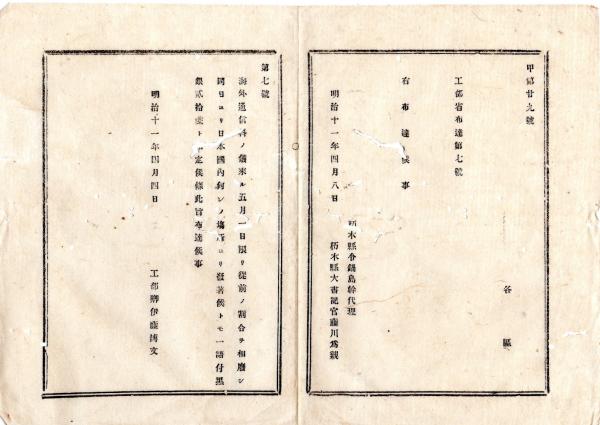 甲第廿九號
各區
工部省布達第七號
右布達候事
明治十一年四月八日
栃木縣令鍋島幹代理
栃木縣大書記官藤川爲親
第七號
海外通信料ノ儀來ル五月一日限リ從前ノ割合ヲ相廢シ
同日ヨリ日本國內何レノ場所ヨリ發著候トモ一語付墨
銀貳拾錢ト定候條此旨布達候事
明治十一年四月四日
工部卿伊藤博文